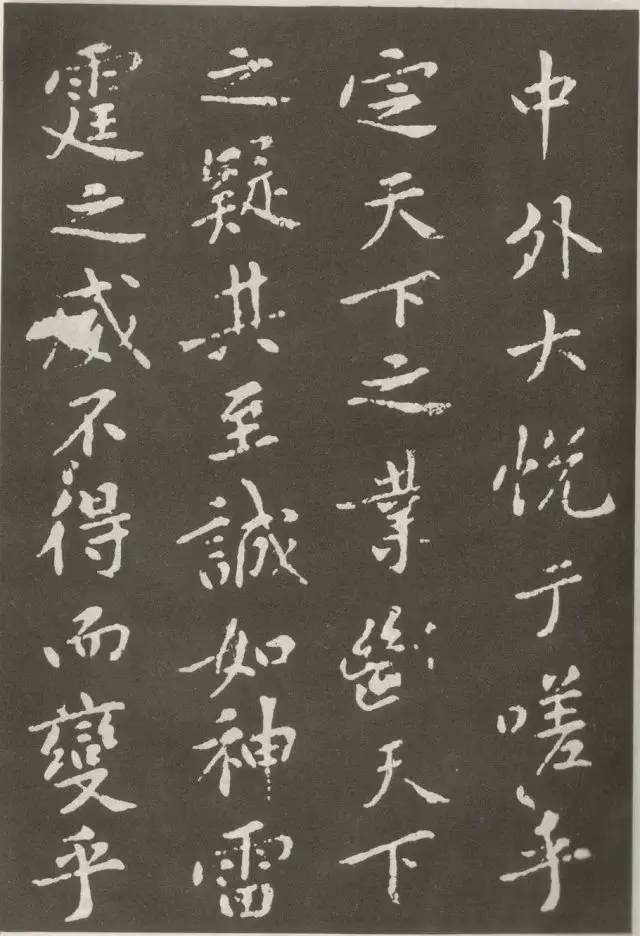 中外大悅于嗟乎
定天下之業斷天下
之疑其至誠如神雷
霆之威不得而變乎